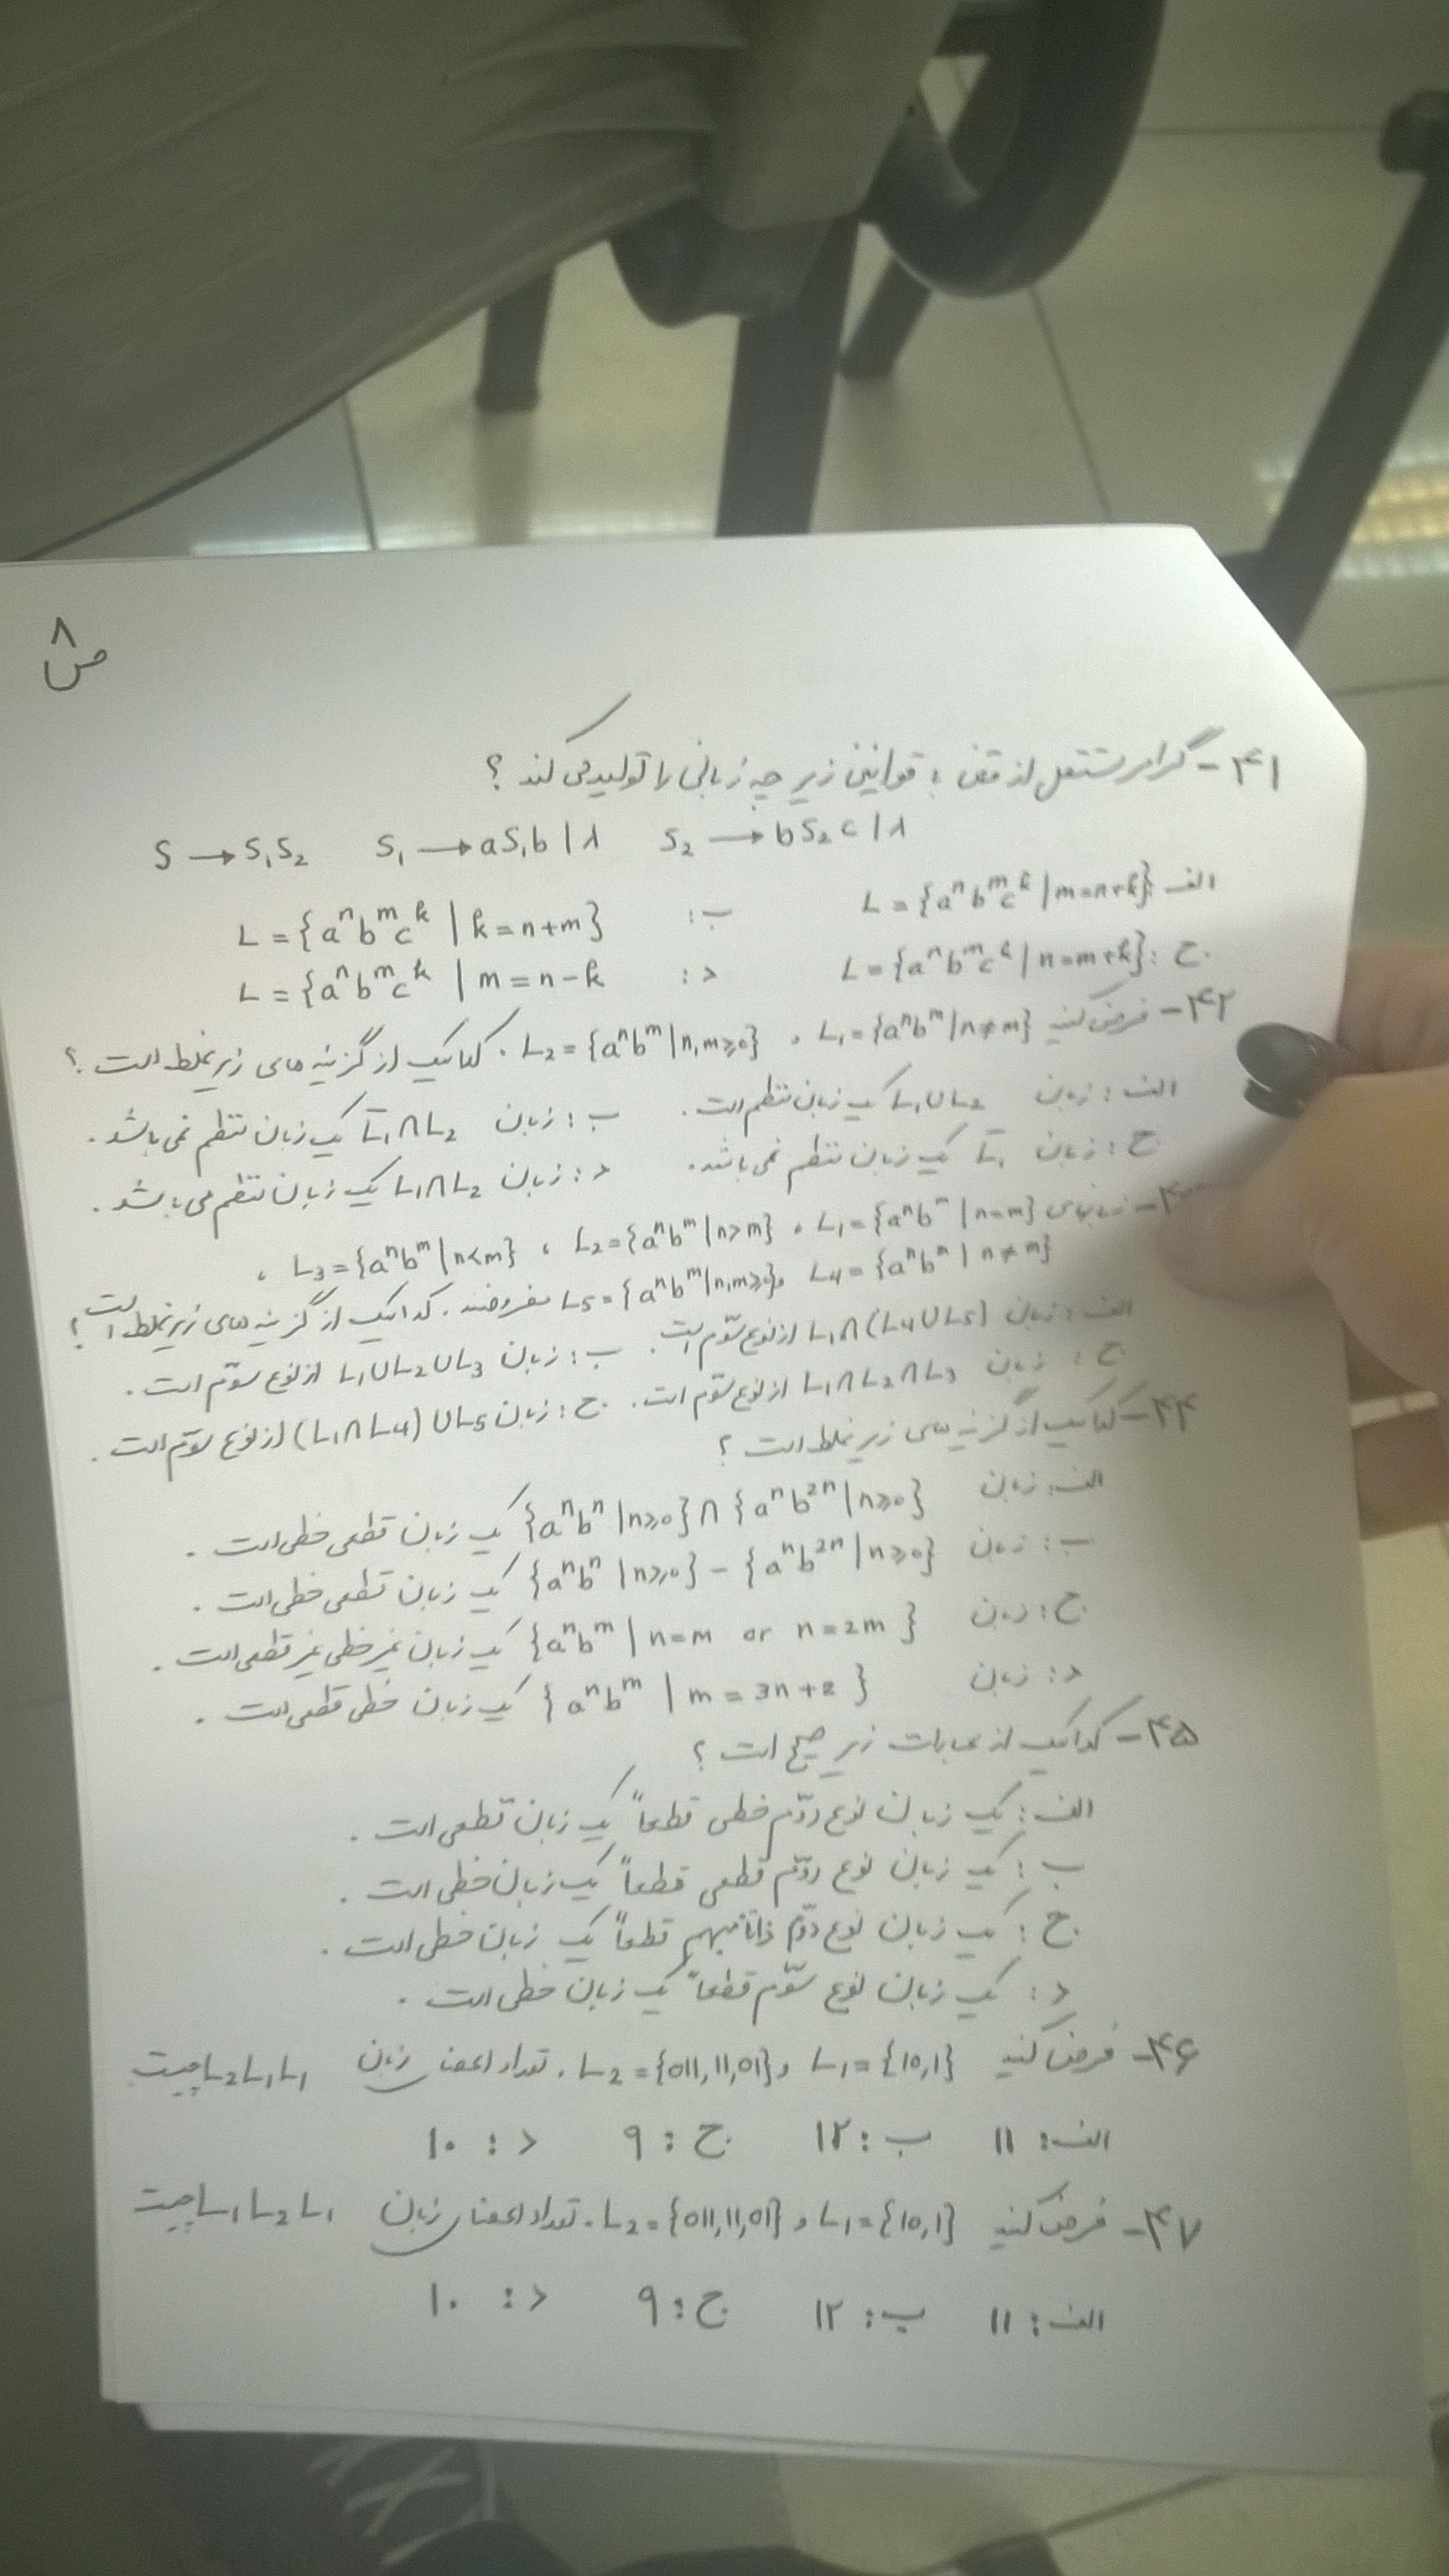 ص ۸
۴۱- گرامر مستقل از متن با قوانین زیر چه زبانی را تولید می کند ؟
S → S₁S₂   S₁ → aS₁b | λ   S₂ → bS₂c | λ
الف: L = {aⁿbᵐcᵏ | m=n+k}   ب: L = {aⁿbᵐcᵏ | k=n+m}
ج: L = {aⁿbᵐcᵏ | n=m+k}   د: L = {aⁿbᵐcᵏ | m=n-k
۴۲- فرض کنید L₁ = {aⁿbᵐ | n≠m} ، L₂ = {aⁿbᵐ | n,m≥0} . کدامیک از گزینه های زیر غلط است ؟
الف: زبان L₁∪L₂ یک زبان منظم است.   ب: زبان L̅₁∩L₂ یک زبان منظم نمی باشد.
ج: زبان L̅₁ یک زبان منظم نمی باشد.   د: زبان L₁∩L₂ یک زبان منظم می باشد.
زبانهای L₁ = {aⁿbᵐ | n=m} ، L₂ = {aⁿbᵐ | n>m} ، L₃ = {aⁿbᵐ | n<m} ،
L₄ = {aⁿbᵐ | n≠m} و L₅ = {aⁿbᵐ | n,m≥0} مفروضند . کدامیک از گزینه های زیر غلط است ؟
الف: زبان L₁∩(L₄∪L₅) از نوع سوّم است.   ب: زبان L₁∪L₂∪L₃ از نوع سوّم است.
ج: زبان L₁∩L₂∩L₃ از نوع سوّم است.   ج: زبان (L₁∩L₄)∪L₅ از نوع سوّم است.
۴۴- کدامیک از گزینه های زیر غلط است ؟
الف: زبان {aⁿbⁿ | n≥0} ∩ {aⁿb²ⁿ | n≥0} یک زبان قطعی خطی است.
ب: زبان {aⁿbⁿ | n≥0} - {aⁿb²ⁿ | n≥0} یک زبان قطعی خطی است.
ج: زبان {aⁿbᵐ | n=m or n=2m } یک زبان غیر خطی غیر قطعی است.
د: زبان {aⁿbᵐ | m=3n+2 } یک زبان خطی قطعی است.
۴۵- کدامیک از عبارات زیر صحیح است ؟
الف: یک زبان نوع دوّم خطی قطعاً یک زبان قطعی است.
ب: یک زبان نوع دوّم قطعی قطعاً یک زبان خطی است.
ج: یک زبان نوع دوّم ذاتاً مبهم قطعاً یک زبان خطی است.
د: یک زبان نوع سوّم قطعاً یک زبان خطی است.
۴۶- فرض کنید L₁ = {10,1} و L₂ = {011,11,01} . تعداد اعضای زبان L₂L₁L₁ چیست
الف: ۱۱   ب: ۱۲   ج: ۹   د: ۱۰
۴۷- فرض کنید L₁ = {10,1} و L₂ = {011,11,01} . تعداد اعضای زبان L₁L₂L₁ چیست
الف: ۱۱   ب: ۱۲   ج: ۹   د: ۱۰